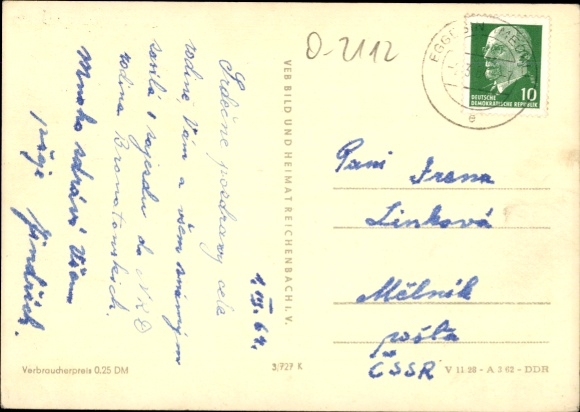 O-2112
EGGESIN
DEUTSCHE
DEMOKRATISCHE REPUBLIK
10
e
1. VII. 64.
Srdečné pozdravy celé
rodině, Vám a všem známým
zasílá z zájezdu do NDR
rodina Bromatanských.
Mnoho zdraví Všem
přeje Jindřich.
VEB BILD UND HEIMAT REICHENBACH I. V.
Paní Irena
Linková
Mělník
pošta
ČSSR
Verbraucherpreis 0.25 DM
3,727 K
V 11 28 - A 3 62 - DDR